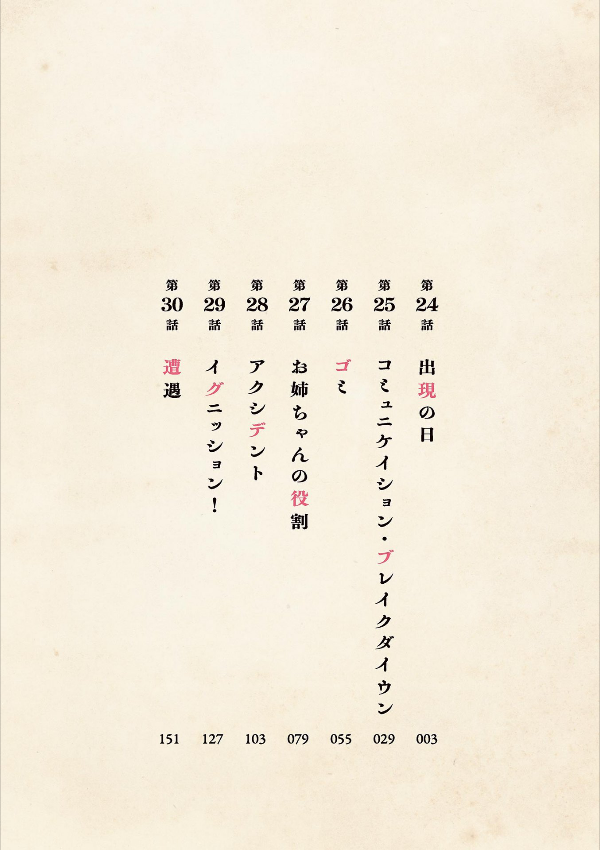 第24話 出現の日 003
第25話 コミュニケイション・ブレイクダイウン 029
第26話 ゴミ 055
第27話 お姉ちゃんの役割 079
第28話 アクシデント 103
第29話 イグニッション！ 127
第30話 遭遇 151